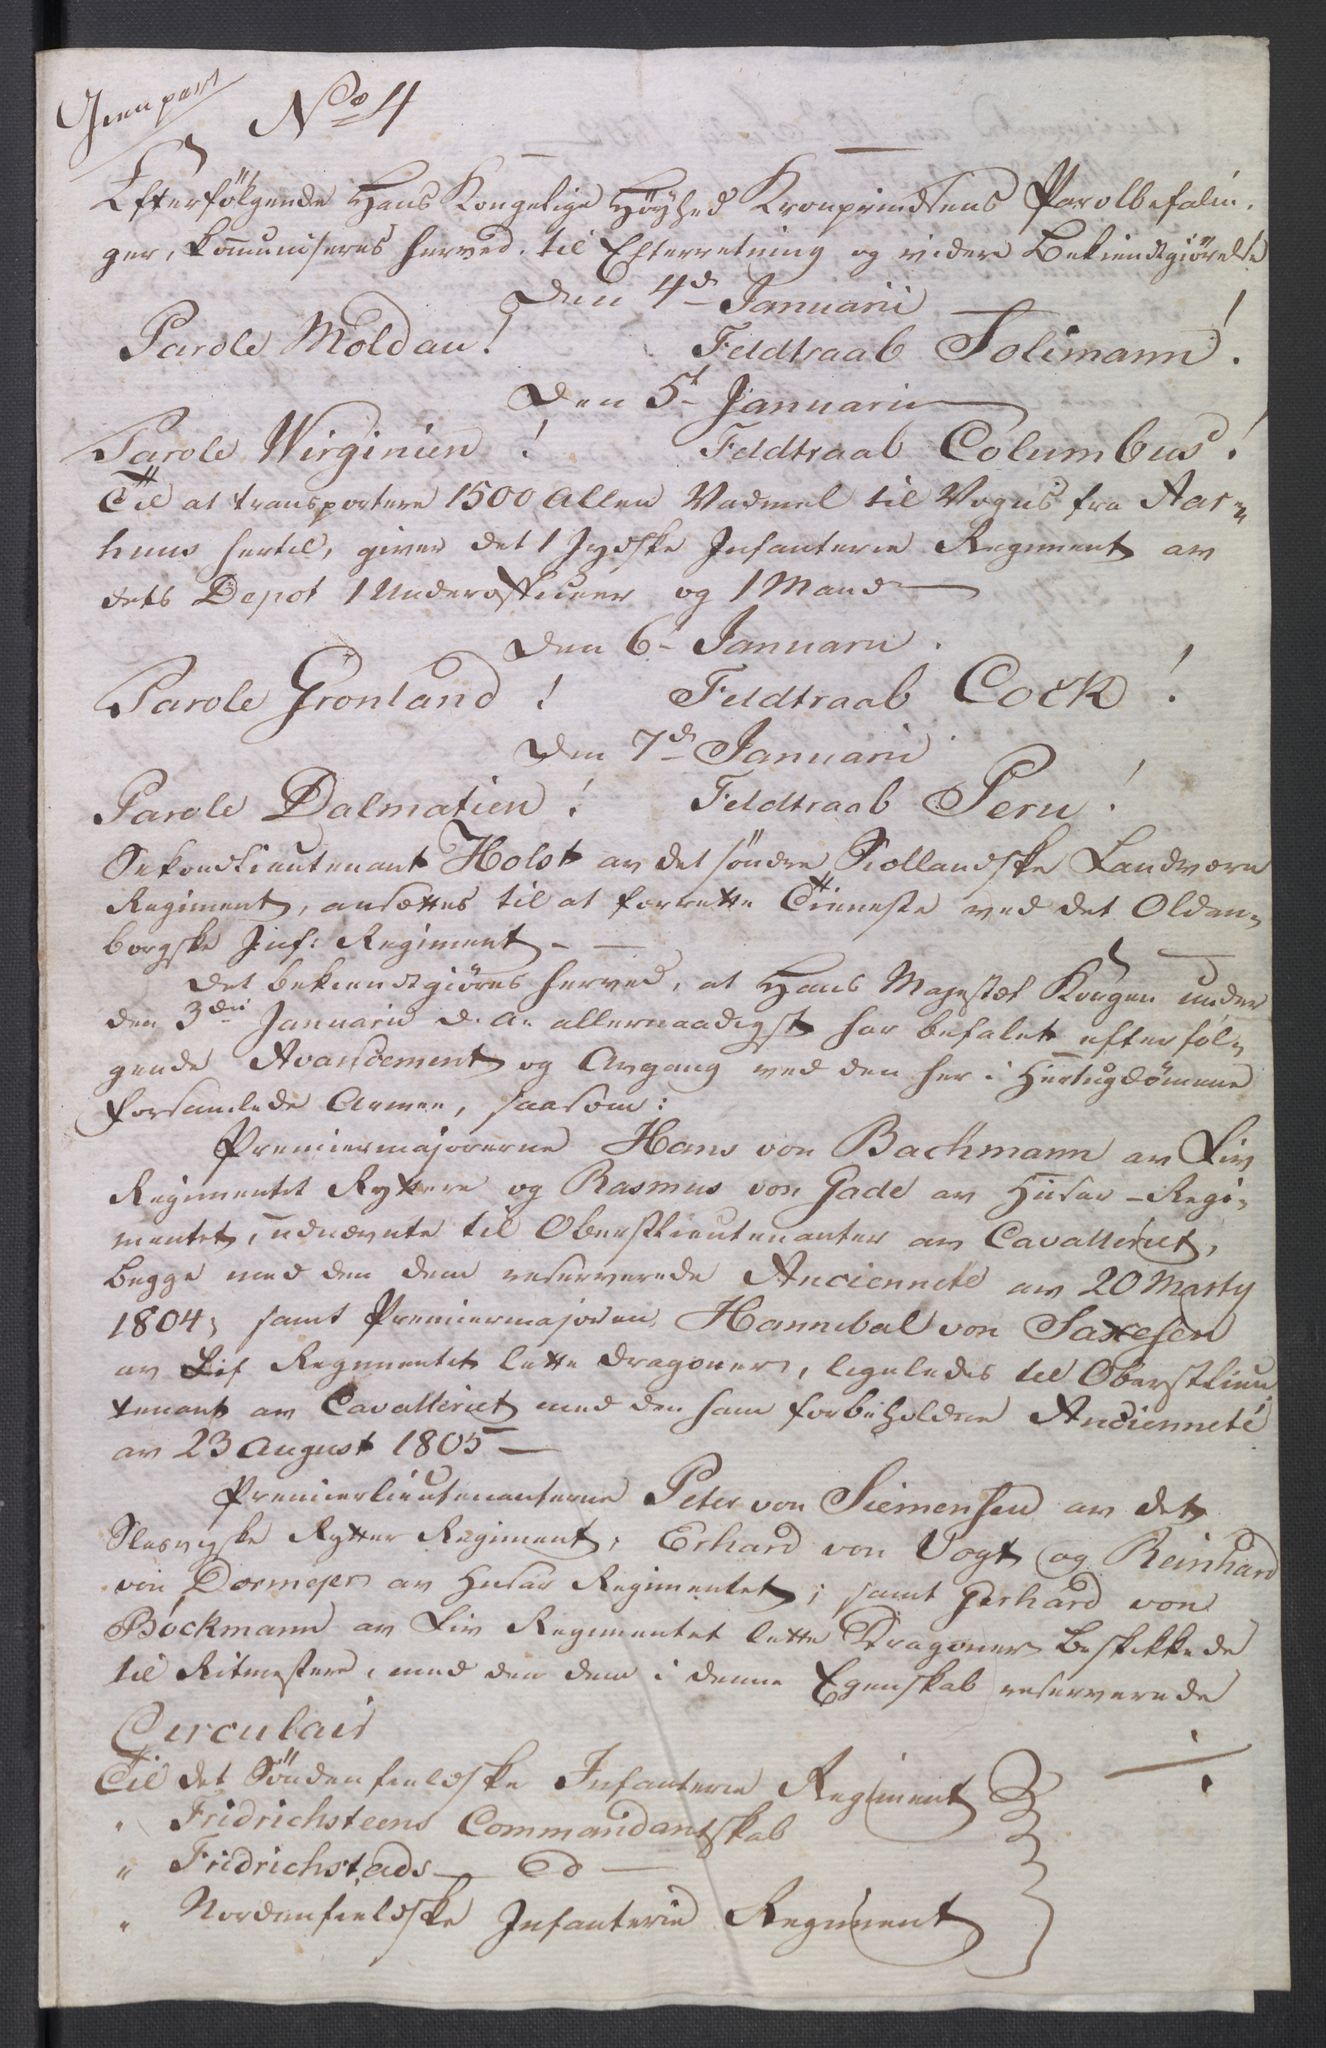 Gienpart
No 4
Efterfölgende Hans Kongelige Höyhed Kronprindsens Parolbefalin-
ger, kommuniseres herved til Efterretning og videre Bekiendtgiörelse
Den 4de Januarii
Parole Moldau! Feldtraab Solimann!
Den 5t Januarii
Parole Wirginien! Feldtraab Columbus!
Til at transportere 1500 Allen Vadmel til Vogns fra Aar-
huus hertil, giver det 1 Jydske Infanterie Regiment av
dets Depot 1 Underofficeer og 1 Mand
Den 6- Januarii.
Parole Grönland! Feldtraab Cock!
Den 7de Januarii
Parole Dalmatien! Feldtraab Peru!
Sekondlieutenant Holst av det söndre Siellandske Landværn
Regiment, ansættes til at forrette Tieneste ved det Olden-
borgske Inf: Regiment -
Det bekiendtgiöres herved, at Hans Majestæt Kongen under
den 3die Januarii d. A. allernaadigst har befalet efterföl-
gende Avancement og Avgang ved den her i Hertugdömme
forsamlede Armee, saasom:
Premiermajorerne Hans von Bachmann av Liv
Regimentet Ryttere og Rasmus von Gade av Husar-Regi-
mentet, udnævnte til Oberstlieutenanter av Cavalleriet,
begge med den dem reserverede Anciennete av 20 Marty
1804; samt Premiermajoren Hannibal von Saxesen
av Lif Regimentet lette Dragoner, ligeledes til Oberstlieu-
tenant av Cavalleriet med den ham forbeholdne Ancienneté
av 23 August 1805 -
Premierlieutenanterne Peter von Siemensen av det
Slesvigske Rytter Regiment, Erhard von Vogt og Reinhard
von Dormejer av Husar Regimentet; samt Gerhard von
Böckmann av Liv Regimentet lette Dragoner beskikkede
til Ritmestere, med den dem i denne Egenskab reserverede
Circulair
Til det Söndenfieldske Infanterie Regiment
" Fridrichsteens Commandantskab
" Fridrichstads — d —
" Nordenfieldske Infanterie Regiment